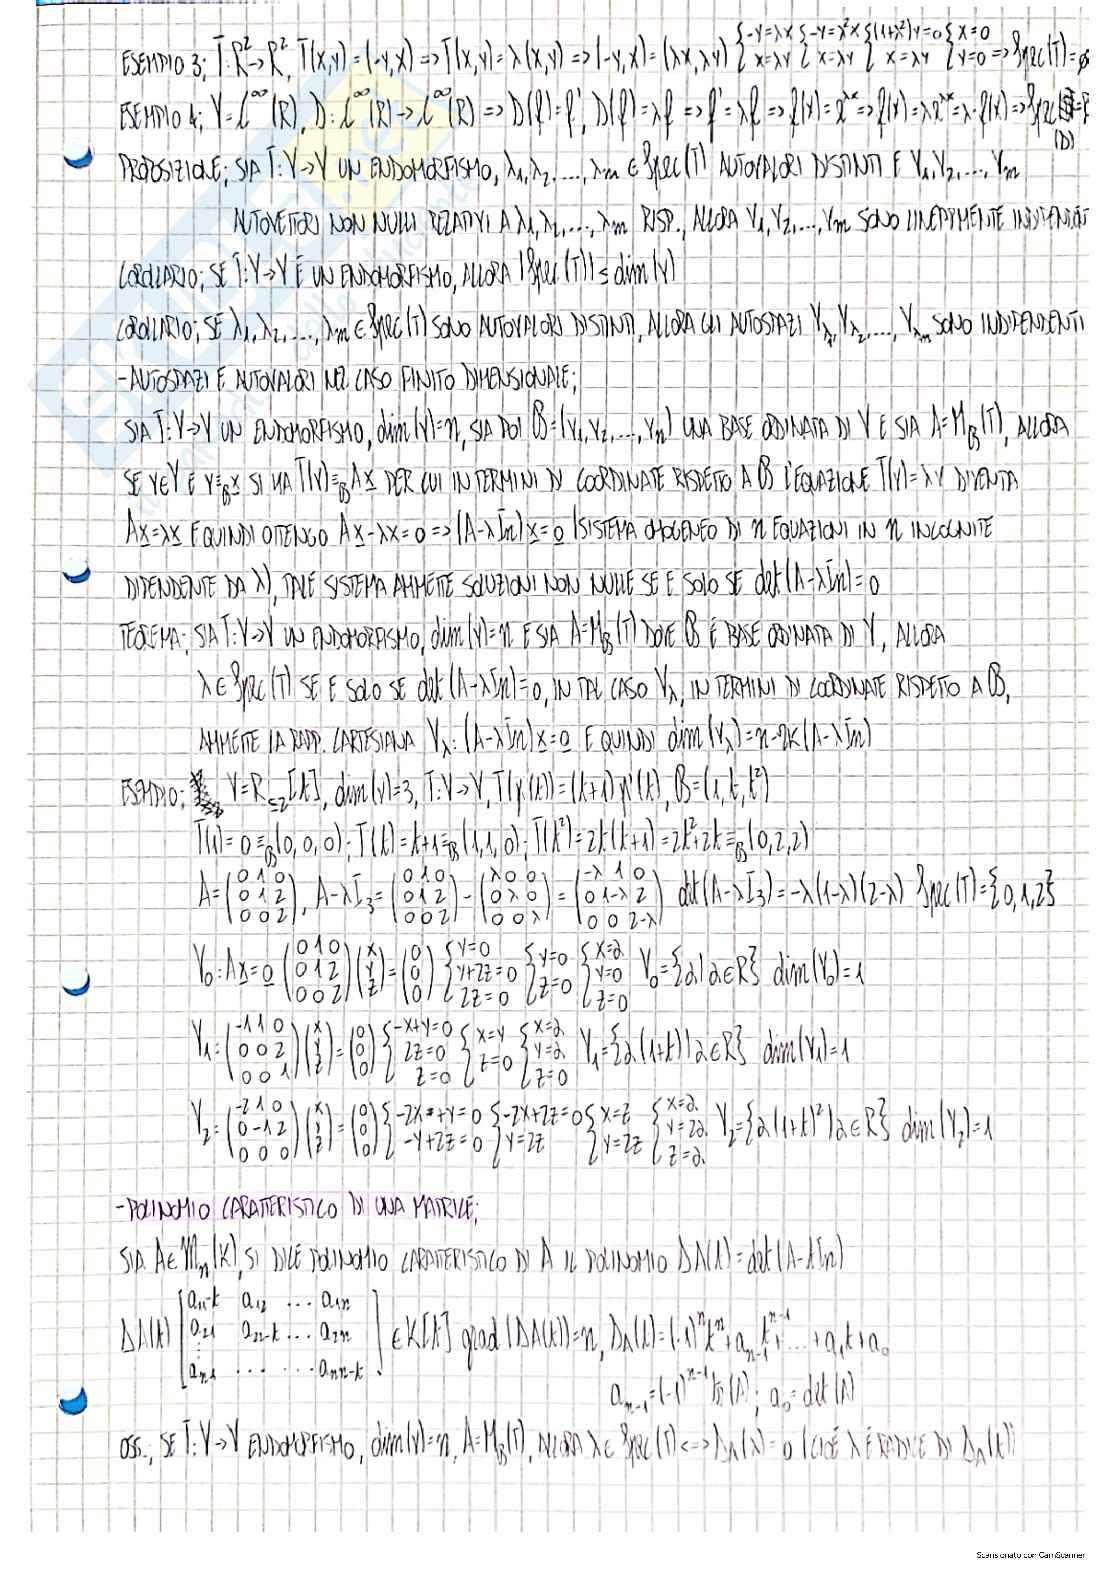 ESEMPIO 3; T:R²→R², T(x,y)=(-y,x) => T(x,y)=λ(x,y) => (-y,x)=(λx,λy) {-y=λx x=λy {-y=λ²x x=λy {(1+λ²)y=0 x=λy {x=0 y=0 => Spec(T)=∅
ESEMPIO 4; V=C^∞(R), D:C^∞(R)→C^∞(R) => D(f)=f', D(f)=λf => f'=λf => f(x)=e^λx => f(x)=λe^λx=λ·f(x) => Spec(D)
PROPOSIZIONE; SIA T:V→V UN ENDOMORFISMO, λ₁,λ₂,...,λm ∈ Spec(T) AUTOVALORI DISTINTI E V₁,V₂,...,Vm
AUTOVETTORI NON NULLI RELATIVI A λ₁,λ₂,...,λm RISP., ALLORA V₁,V₂,...,Vm SONO LINEARMENTE INDIPENDENTI
COROLLARIO; SE T:V→V È UN ENDOMORFISMO, ALLORA |Spec(T)| ≤ dim(V)
COROLLARIO; SE λ₁,λ₂,...,λm ∈ Spec(T) SONO AUTOVALORI DISTINTI, ALLORA GLI AUTOSPAZI Vλ₁,Vλ₂,...,Vλm SONO INDIPENDENTI
-AUTOSPAZI E AUTOVALORI NEL CASO FINITO DIMENSIONALE;
SIA T:V→V UN ENDOMORFISMO, dim(V)=n, SIA POI B=(V₁,V₂,...,Vn) UNA BASE ORDINATA DI V E SIA A=M_B(T), ALLORA
SE V∈V E V≡_B x SI HA T(V)≡_B Ax PER CUI IN TERMINI DI COORDINATE RISPETTO A B L'EQUAZIONE T(V)=λV DIVENTA
Ax=λx E QUINDI OTTENGO Ax-λx=0 => (A-λIn)x=0 (SISTEMA OMOGENEO DI n EQUAZIONI IN n INCOGNITE
DIPENDENTE DA λ), TALE SISTEMA AMMETTE SOLUZIONI NON NULLE SE E SOLO SE det(A-λIn)=0
TEOREMA; SIA T:V→V UN ENDOMORFISMO, dim(V)=n E SIA A=M_B(T) DOVE B È BASE ORDINATA DI V, ALLORA
λ∈Spec(T) SE E SOLO SE det(A-λIn)=0, IN TAL CASO Vλ, IN TERMINI DI COORDINATE RISPETTO A B,
AMMETTE LA RAPP. CARTESIANA Vλ: (A-λIn)x=0 E QUINDI dim(Vλ)=n-rk(A-λIn)
ESEMPIO; V=R≤2[t], dim(V)=3, T:V→V, T(p(t))=(t+1)p'(t), B=(1,t,t²)
T(1)=0≡_B(0,0,0); T(t)=t+1≡_B(1,1,0); T(t²)=2t(t+1)=2t²+2t≡_B(0,2,2)
A=(0 1 0 / 0 1 2 / 0 0 2), A-λI₃=(0 1 0 / 0 1 2 / 0 0 2)-(λ 0 0 / 0 λ 0 / 0 0 λ)=(-λ 1 0 / 0 1-λ 2 / 0 0 2-λ) det(A-λI₃)=-λ(1-λ)(2-λ) Spec(T)={0,1,2}
V₀: Ax=0 (0 1 0 / 0 1 2 / 0 0 2)(x y z)=(0 0 0) {y=0 y+2z=0 2z=0 {y=0 z=0 {x=a y=0 z=0 V₀={a|a∈R} dim(V₀)=1
V₁: (-1 1 0 / 0 0 2 / 0 0 1)(x y z)=(0 0 0) {-x+y=0 2z=0 z=0 {x=y z=0 {x=a y=a z=0 V₁={a(1+t)|a∈R} dim(V₁)=1
V₂: (-2 1 0 / 0 -1 2 / 0 0 0)(x y z)=(0 0 0) {-2x+y=0 -y+2z=0 {-2x+2z=0 y=2z {x=z y=2z {x=a y=2a z=a V₂={a(1+t)²|a∈R} dim(V₂)=1
-POLINOMIO CARATTERISTICO DI UNA MATRICE;
SIA A∈Mn(K), SI DICE POLINOMIO CARATTERISTICO DI A IL POLINOMIO ΔA(t)=det(A-tIn)
ΔA(t) [a₁₁-t a₁₂ ... a₁n / a₂₁ a₂₂-t ... a₂n / ⋮ / an₁ ... ... ann-t] ∈K[t] grad(ΔA(t))=n, ΔA(t)=(-1)ⁿtⁿ+a_{n-1}t^{n-1}+...+a₁t+a₀
a_{n-1}=(-1)^{n-1}tr(A); a₀=det(A)
OSS.; SE T:V→V ENDOMORFISMO, dim(V)=n, A=M_B(T), ALLORA λ∈Spec(T) <=> ΔA(λ)=0 (CIOÈ λ È RADICE DI ΔA(t))
Scansionato con CamScanner